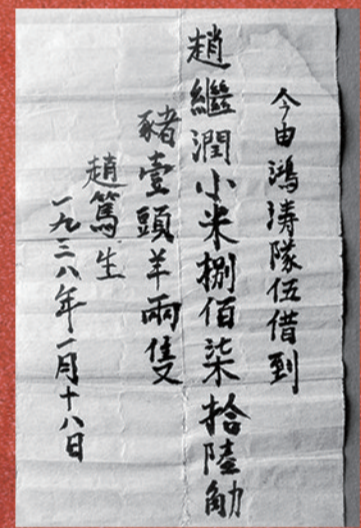 今由鴻濤隊伍借到
趙繼潤小米捌佰柒拾陸觔
豬壹頭羊兩隻
趙篤生
一九三八年一月十八日